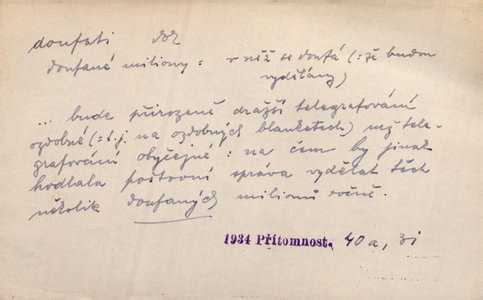 doufati dok
doufané miliony = v něž se doufá (: že budou
vydělány)
... bude přirozeně dražší telegrafování
ozdobné (: t. j. na ozdobných blanketech) než tele-
grafování obyčejné : na čem by jinak
hodlala poštovní správa vydělat těch
několik doufaných milionů ročně.
1934 Přítomnost. 40a, 31